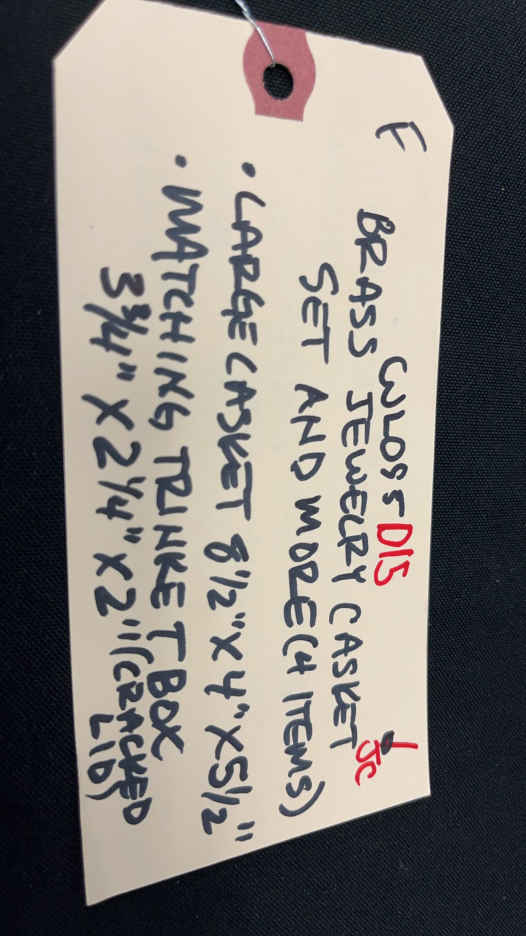 F
CWLOSS D15
BRASS JEWELRY CASKET
SET AND MORE (4 ITEMS)
JC
• LARGE CASKET 8 1/2" X 4" X 5 1/2"
• MATCHING TRINKET BOX
3 3/4" X 2 1/4" X 2" (CRACKED
LID)